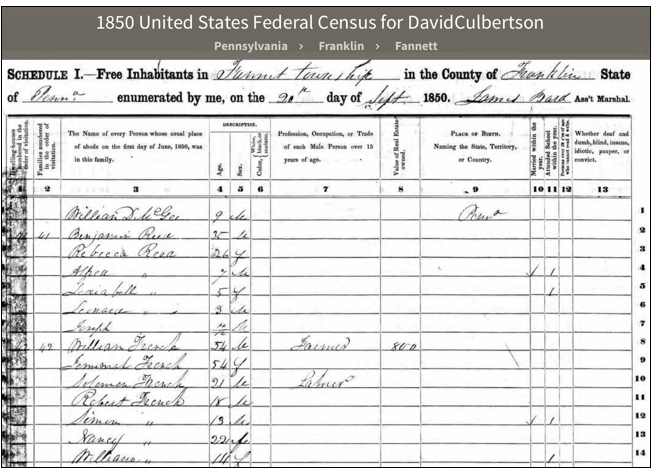 1850 United States Federal Census for DavidCulbertson
Pennsylvania › Franklin › Fannett
SCHEDULE I.—Free Inhabitants in Fannet township in the County of Franklin State
of Pennª enumerated by me, on the 20th day of Sept 1850. James Bard Ass't Marshal.
Dwelling-houses numbered in the order of visitation.
Families numbered in the order of visitation.
The Name of every Person whose usual place of abode on the first day of June, 1850, was in this family.
DESCRIPTION.
Age.
Sex.
Color,
Profession, Occupation, or Trade of each Male Person over 15 years of age.
Value of Real Estate owned.
PLACE OF BIRTH.
Naming the State, Territory, or Country.
Married within the year.
Attended School within the year.
Whether deaf and dumb, blind, insane, idiotic, pauper, or convict.
1 2 3 4 5 6 7 8 9 10 11 12 13
William D. McGee 9 M Penna 1
41 Benjamin 35 M 2
Rebecca 26 f 3
7 M 1 4
" 5 f 1 5
Leonard " 3 M 6
Joseph M 7
42 William French 54 M Farmer 800 8
French 54 f 9
Solomon French 21 M 10
Robert French 18 M 11
Simon " 13 M 1 12
Nancy " 22 f 13
" 14 f 1 14